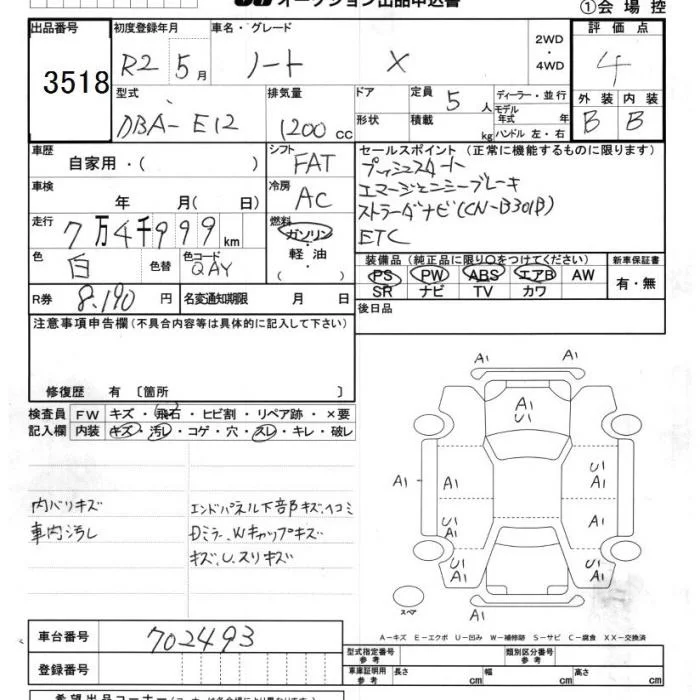 オークション出品申込書
①会場控
出品番号 初度登録年月 車名・グレード 評価点
3518 R2 5月 ノート X 2WD・4WD 4
型式 排気量 ドア 定員 5人 ディーラー・並行 外装 内装
DBA-E12 1200cc 形状 積載 kg モデル年式 年 ハンドル 左・右 B B
車歴 シフト セールスポイント(正常に機能するものに限ります)
自家用・( ) FAT プッシュスタート
車検 冷房 エマージェニシーブレーキ
年 月( 日) AC ストラーダナビ(CN-B301B)
走行 燃料 ETC
7万4千999km ガソリン・軽油・( )
色 白 色替 色コード QAY 装備品(純正品に限り○をつけてください) 新車保証書
PS PW ABS エアB AW 有・無
SR ナビ TV カワ
R券 8,190円 名変通知期限 月 日 後日品
注意事項申告欄(不具合内容等は具体的に記入して下さい)
修復歴 有 〔箇所 〕
検査員 FW キズ・飛石・ヒビ割・リペア跡・×要
記入欄 内装 キズ・汚レ・コゲ・穴・スレ・キレ・破レ
内バリキズ エンドパネル下部キズ、ヘコミ
車内汚レ Dミラー、Wキャップキズ
キズ、U、スリキズ
A1 A1
A1
U1
A1 A1 U1 A1 A1
U1 A1 A1
U1 A1 U1 A1
A1
スペア
A-キズ E-エクボ U-凹み W-補修跡 S-サビ C-腐食 XX-交換済
車台番号 702493
型式指定番号 参考 類別区分番号 参考
登録番号 車庫証明用 参考 長さ cm 幅 cm 高さ cm